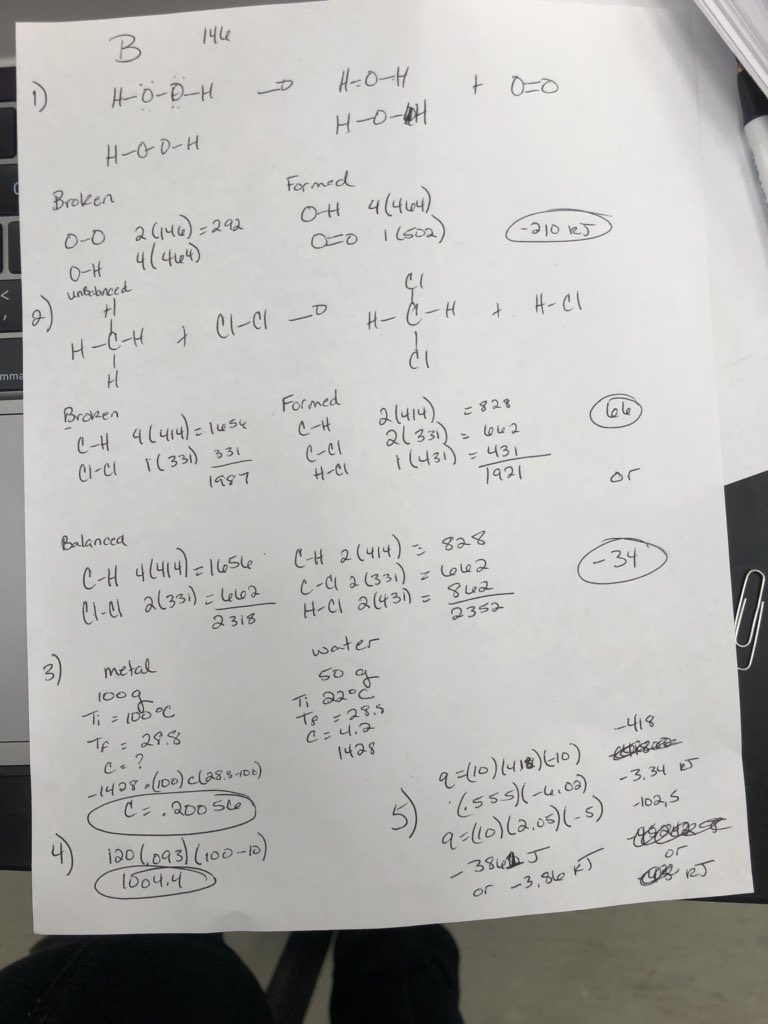 B 146
1) H-O-O-H → H-O-H + O=O
H-O-O-H H-O-H
Broken Formed
O-O 2(146) = 292 O-H 4(464)
O-H 4(464) O=O 1(502) -210 KJ
2) unBalanced
H Cl
H-C-H + Cl-Cl → H-C-H + H-Cl
H Cl
Broken Formed
C-H 4(414) = 1656 C-H 2(414) = 828 66
Cl-Cl 1(331) 331 C-Cl 2(331) = 662
1987 H-Cl 1(431) = 431
1921 or
Balanced
C-H 4(414) = 1656 C-H 2(414) = 828 -34
Cl-Cl 2(331) = 662 C-Cl 2(331) = 662
2318 H-Cl 2(431) = 862
2352
3) metal water
100g 50 g
Ti = 100°C Ti 22°C
Tf = 28.8 Tf = 28.8
C = ? C = 4.2
1428
-1428 = (100) c (28.8-100)
C = .20056
4) 120(.093)(100-10)
1004.4
5) q = (10)(4.18)(-10) -418
(.555)(-6.02) -3.34 KJ
q = (10)(2.05)(-5) -102.5
-3861 J or
or -3.86 KJ KJ